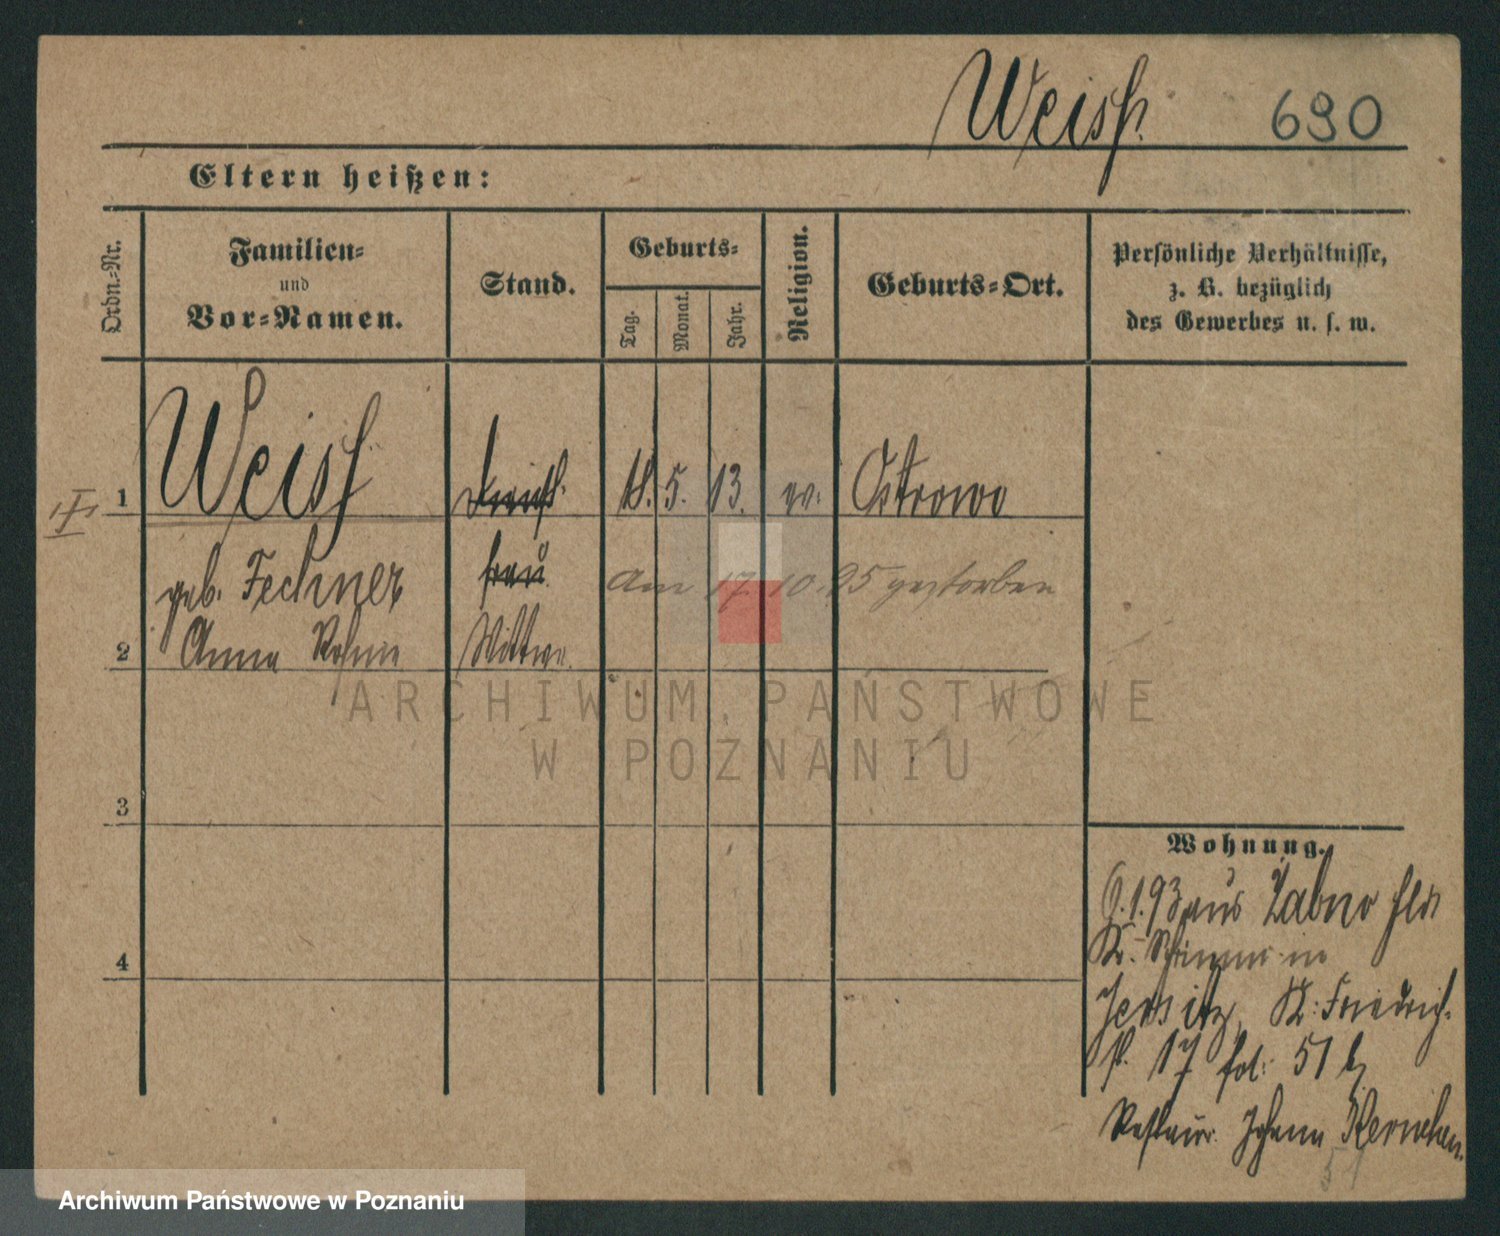 Weiß. 690
Eltern heißen:
Ordn.-Nr.
Familien-
und
Vor-Namen.
Stand.
Geburts-
Tag.
Monat.
Jahr.
Religion.
Geburts-Ort.
Persönliche Verhältnisse,
z. B. bezüglich
des Gewerbes u. s. w.
I
1 Weiß 18. 5. 13. ev. Ostrowo
geb. Fechner frau
am 17. 10. 95 gestorben
2 Anna Wittwe.
3
4
Wohnung.
6.1.93 aus Zabno
in
Jersitz, Kl: Friedrich-
17 fol: 51 b
Restaur. Johann
51
ARCHIWUM PAŃSTWOWE
W POZNANIU
Archiwum Państwowe w Poznaniu